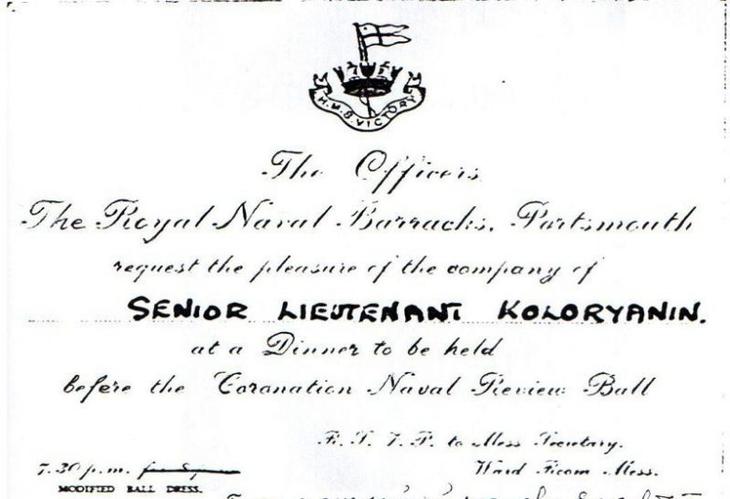 H.M.S. VICTORY
The Officers
The Royal Naval Barracks, Portsmouth
request the pleasure of the company of
SENIOR LIEUTENANT KOLORYANIN.
at a Dinner to be held
before the Coronation Naval Review Ball
R.S.V.P. to Mess Secretary.
7.30 p.m. Ward Room Mess.
MODIFIED BALL DRESS.